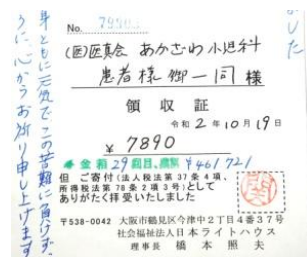 ました
No. 79
(医)医真会 あかざわ小児科
患者様御一同 様
領収証
令和 2 年 10 月 19 日
¥ 7890
金額 29回目、累計 ¥461,721
但 ご寄付(法人税法第37条4項、
所得税法第78条2項3号)として
ありがたく拝受いたしました
〒538-0042 大阪市鶴見区今津中2丁目4番37号
社会福祉法人日本ライトハウス
理事長 橋本照夫
身ともに元気でこの苦難に負けず
うに、心からお祈り申し上げます